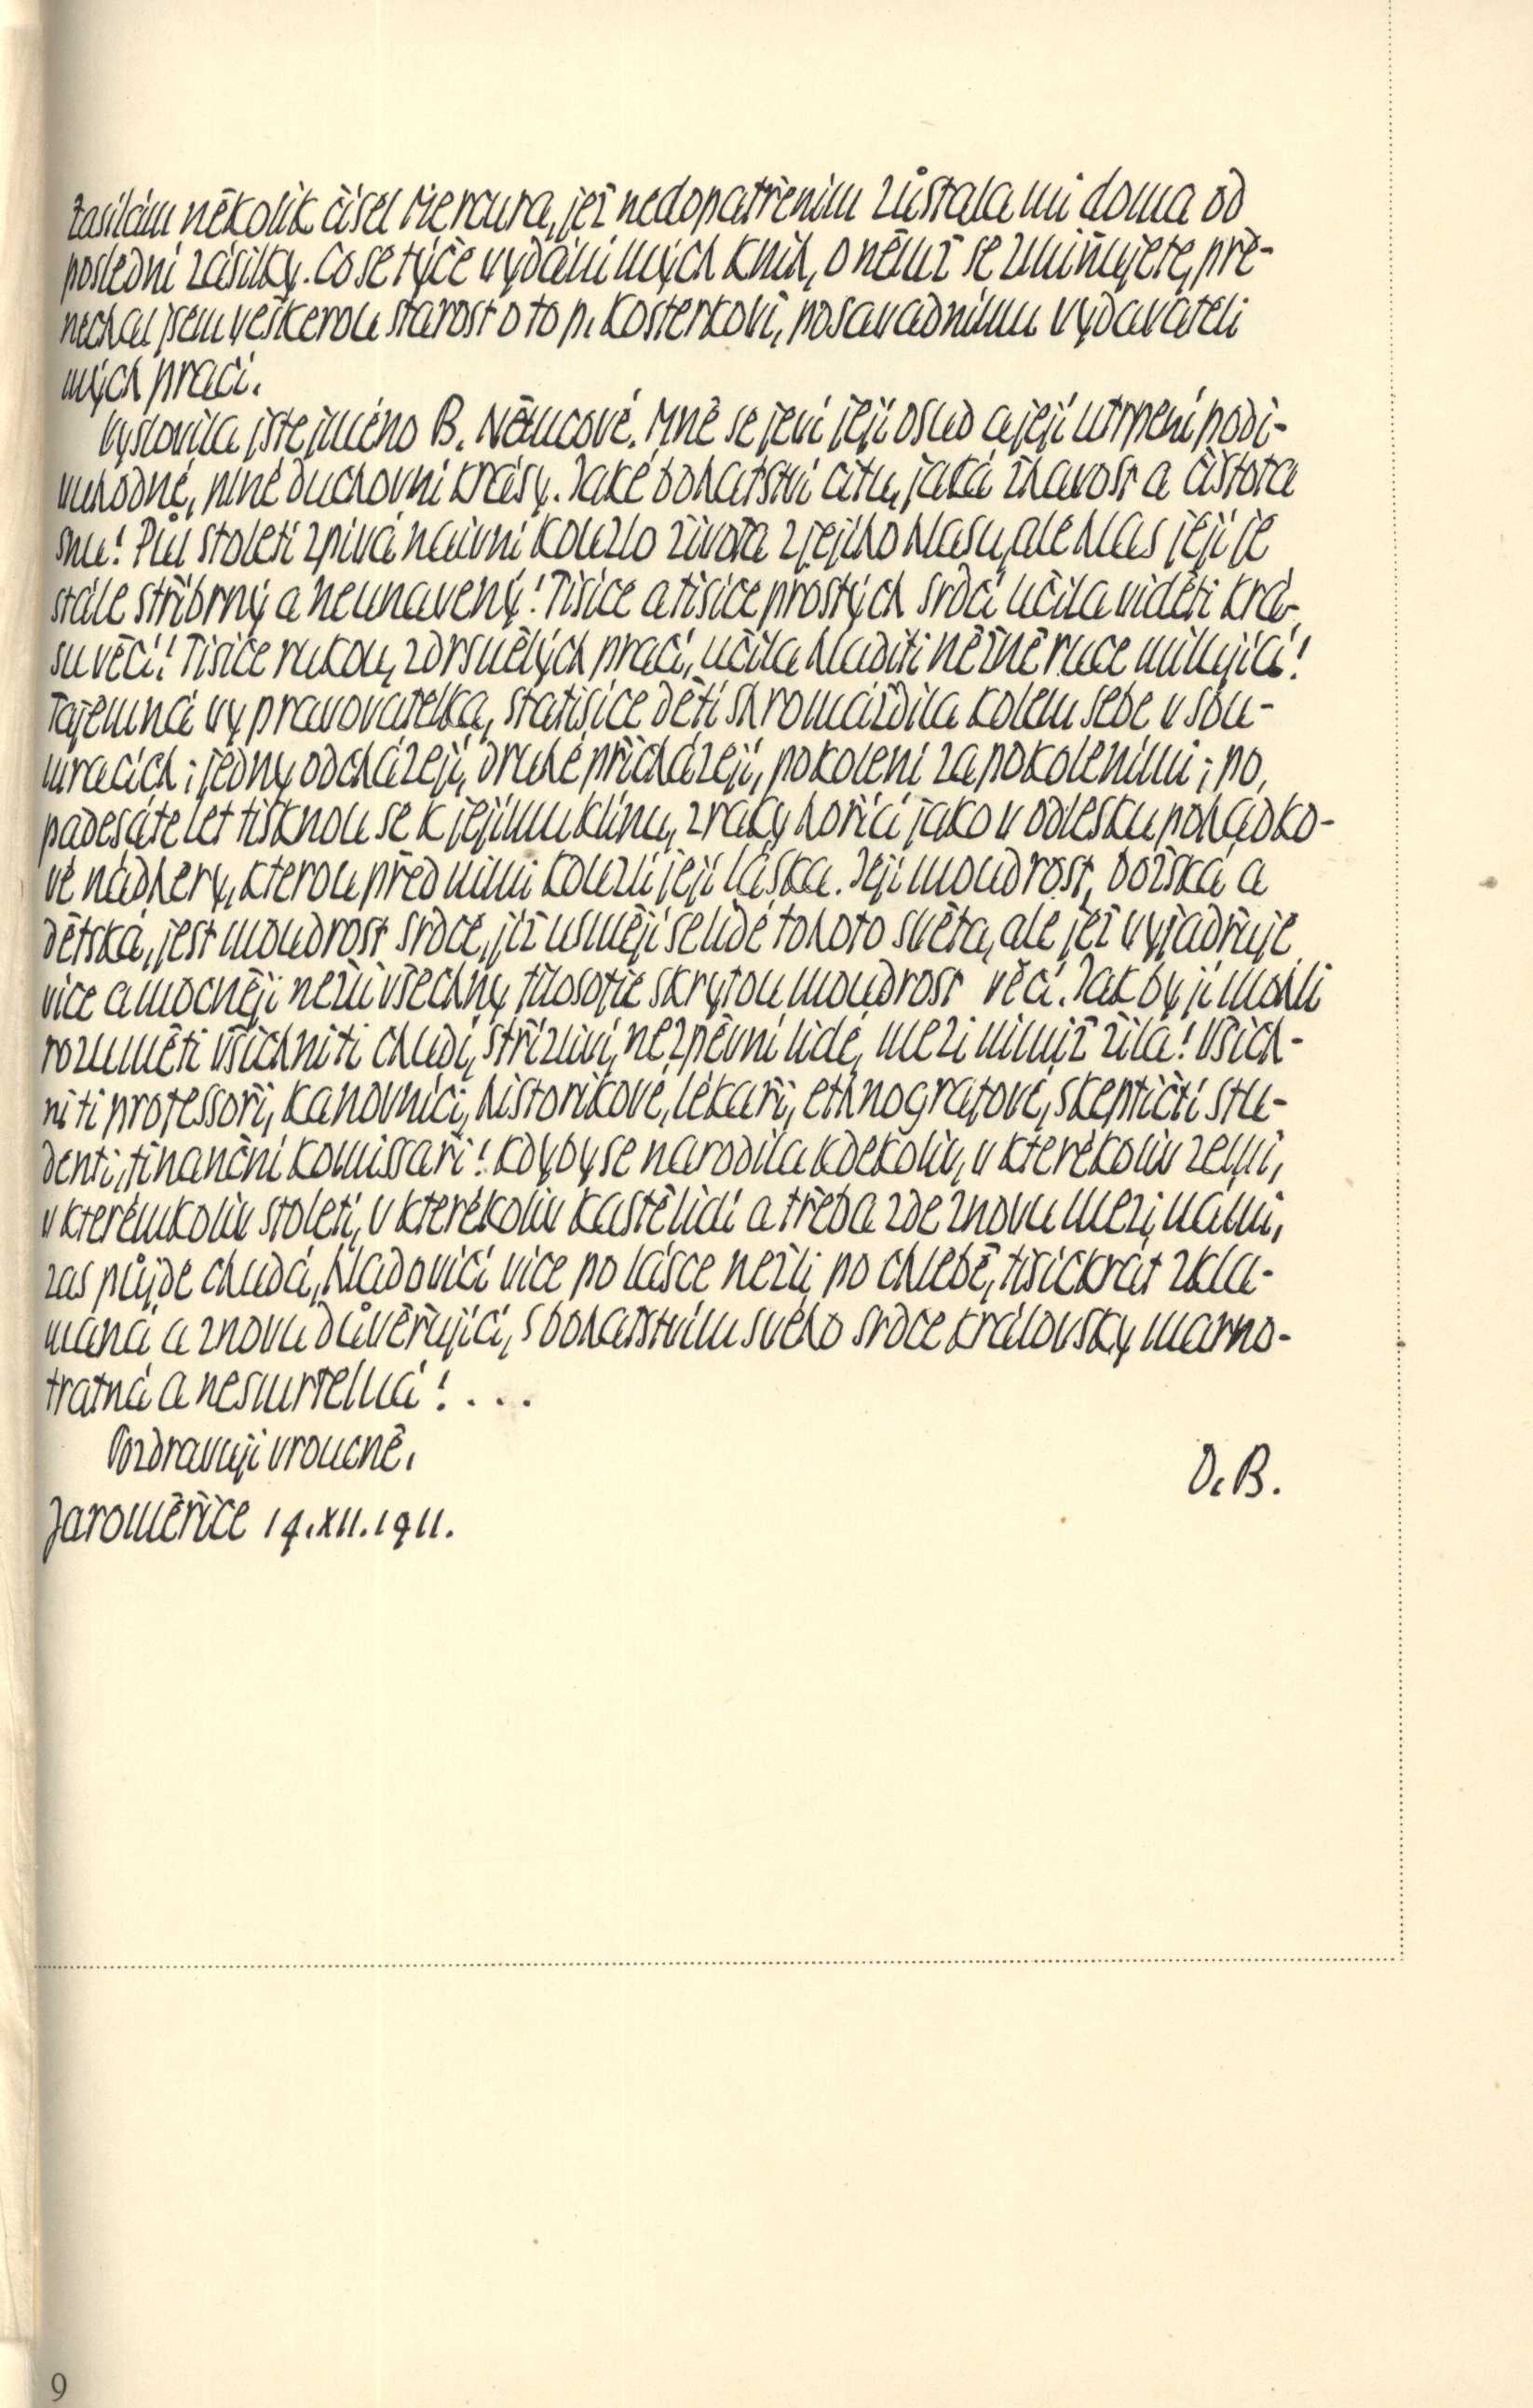 zasílám několik čísel Mercura, jež nedopatřením zůstala mi doma od
poslední zásilky. Co se týče vydání mých knih, o němž se zmiňujete, pře-
nechal jsem veškerou starost o to p. Kosterkovi, posavadnímu vydavateli
mých prací.
Vyslovila jste jméno B. Němcové. Mně se jeví její osud a její utrpení podi-
vuhodné, plné duchovní krásy. Jaké bohatství citu, jaká žhavost a čistota
snu! Půl století zpívá naivní kouzlo života z jejího hlasu, ale hlas její je
stále stříbrný a neunavený! Tisíce a tisíce prostých srdcí učila viděti krá-
su věcí! Tisíce rukou, zdrsnělých prací, učila hladiti něžně ruce milující!
Tajemná vypravovatelka, statisíce dětí shromáždila kolem sebe v sou-
mracích; jedny odcházejí, druhé přicházejí, pokolení za pokolením; po
padesáte let tisknou se k jejímu klínu, zraky hořící jako v odlesku pohádko-
vé nádhery, kterou před nimi kouzlí její láska. Její moudrost, božská a
dětská, jest moudrost srdce, jíž usmějí se lidé tohoto světa, ale jež vyjadřuje
více a mocněji nežli všechny filosofie skrytou moudrost věcí. Jak by jí mohli
rozuměti všichni ti chudí, střízliví, nezpěvní lidé, mezi nimiž žila! Všich-
ni ti professoři, kanovníci, historikové, lékaři, ethnografové, skeptičtí stu-
denti, finanční komissaři! Kdyby se narodila kdekoliv, v kterékoliv zemi,
v kterémkoliv století, v kterékoliv kastě lidí a třeba zde znovu mezi námi,
zas půjde chudá, hladovící více po lásce nežli po chlebě, tisíckrát zkla-
maná a znovu důvěřující, s bohatstvím svého srdce královsky marno-
tratná a nesmrtelná! . . .
Pozdravuji vroucně.
O. B.
Jaroměřice 14. XII. 1911.
9